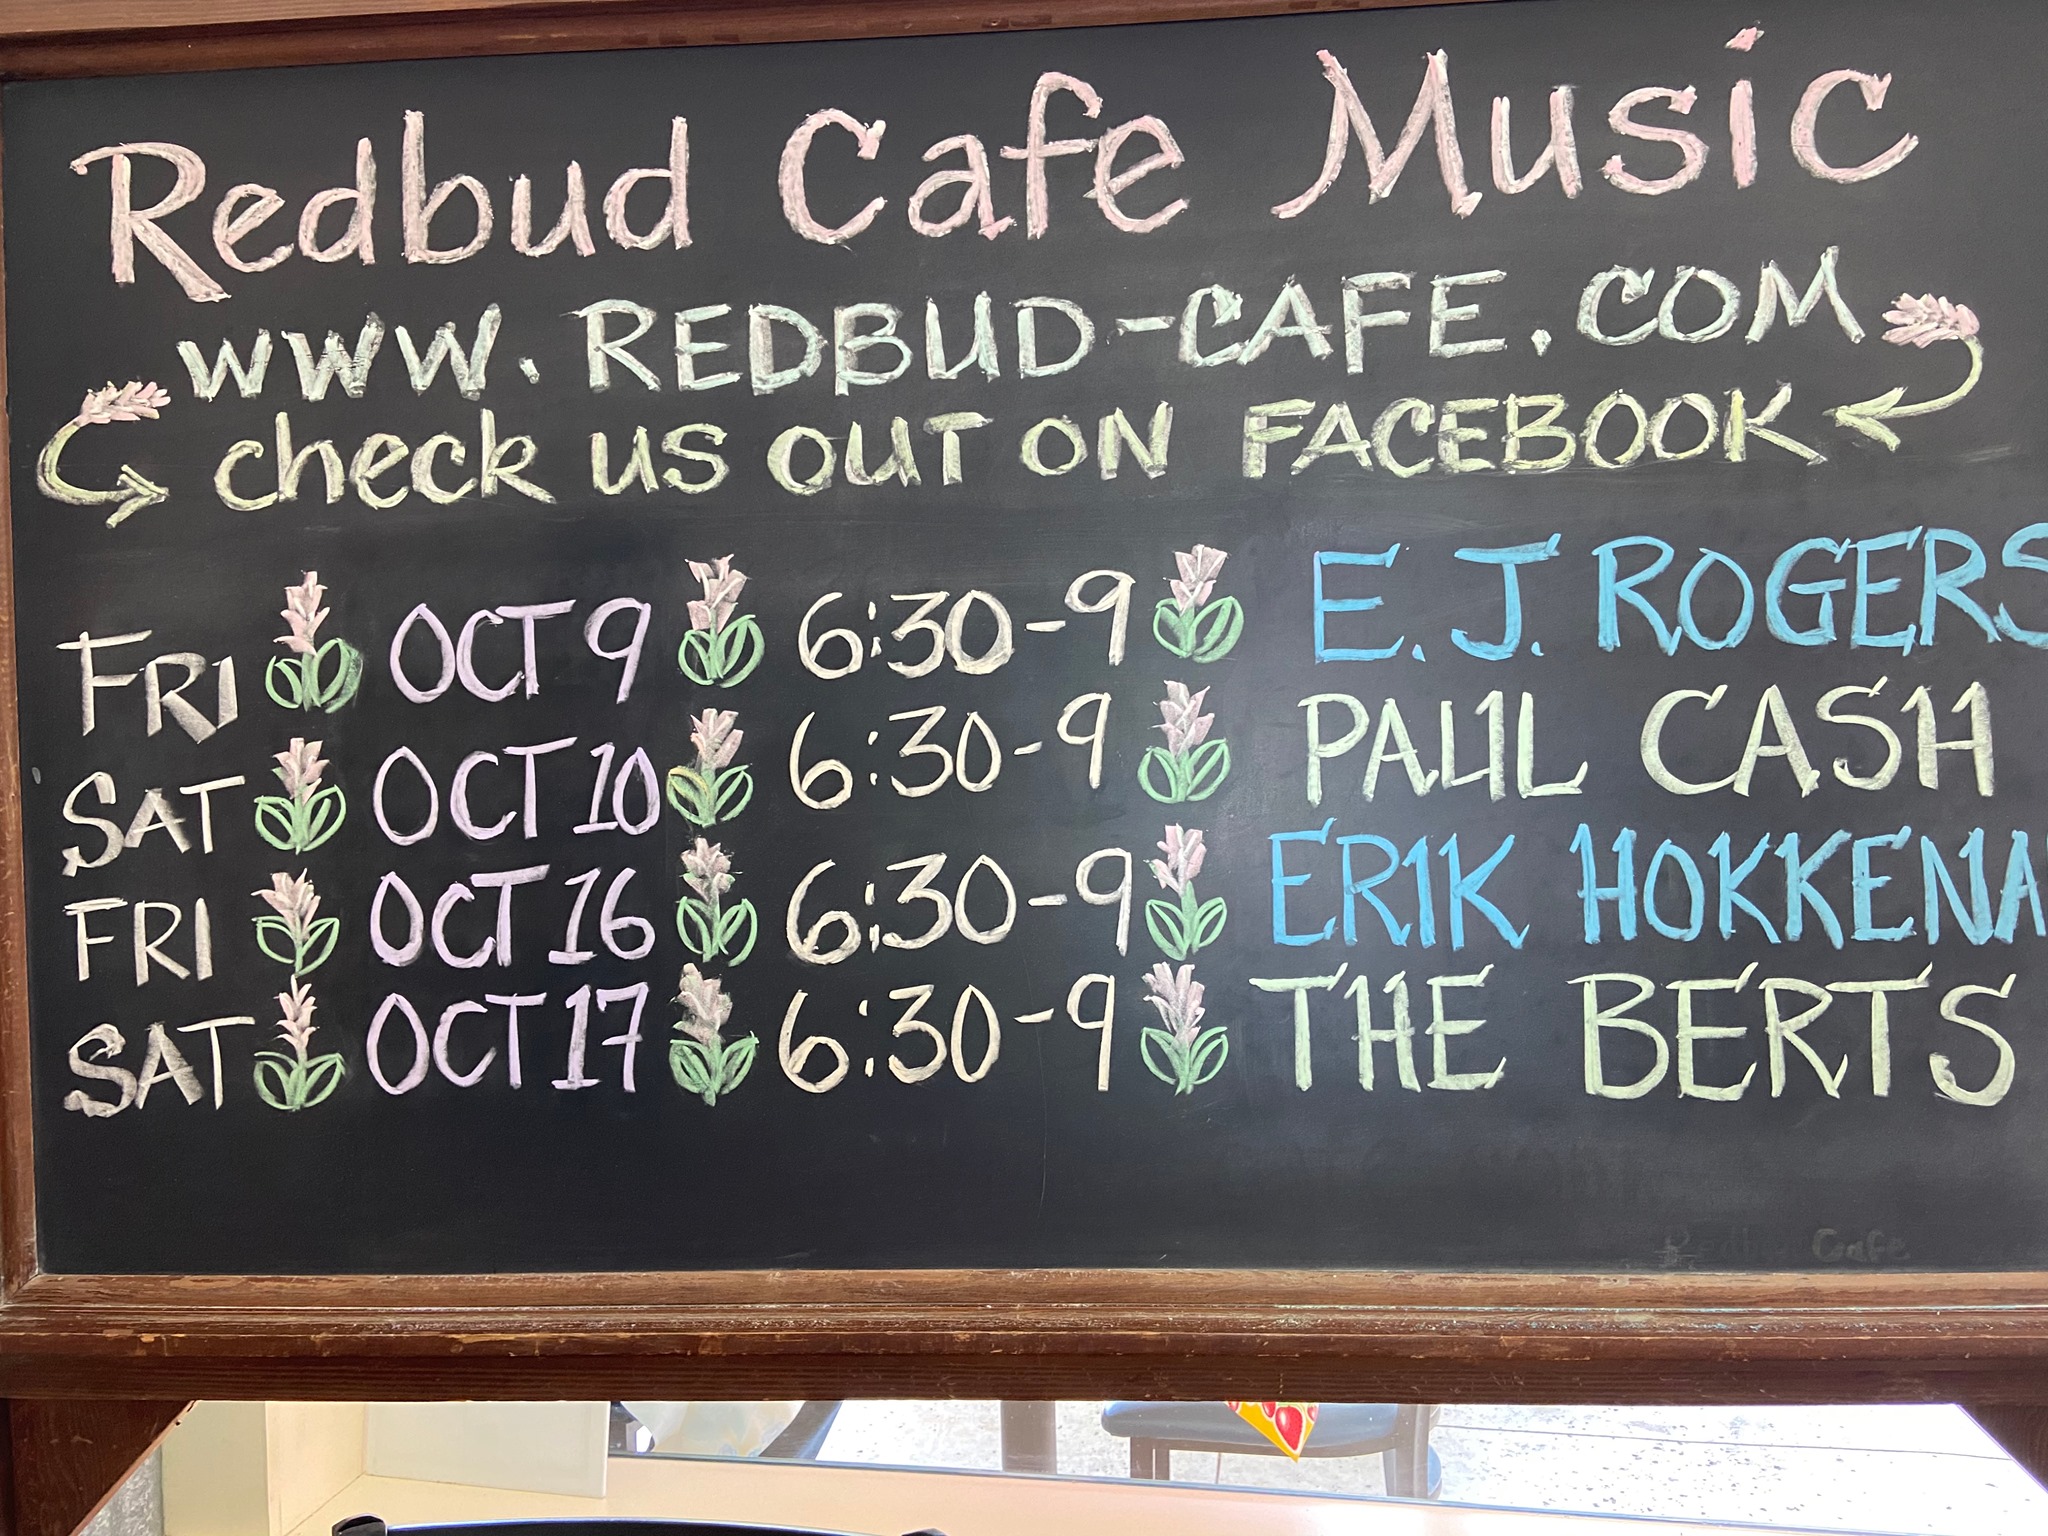 Redbud Cafe Music
WWW.REDBUD-CAFE.COM
check US OUT ON FACEBOOK
FRI OCT 9 6:30-9 E.J. ROGERS
SAT OCT 10 6:30-9 PAUL CASH
FRI OCT 16 6:30-9 ERIK HOKKENA
SAT OCT 17 6:30-9 THE BERTS
Cafe